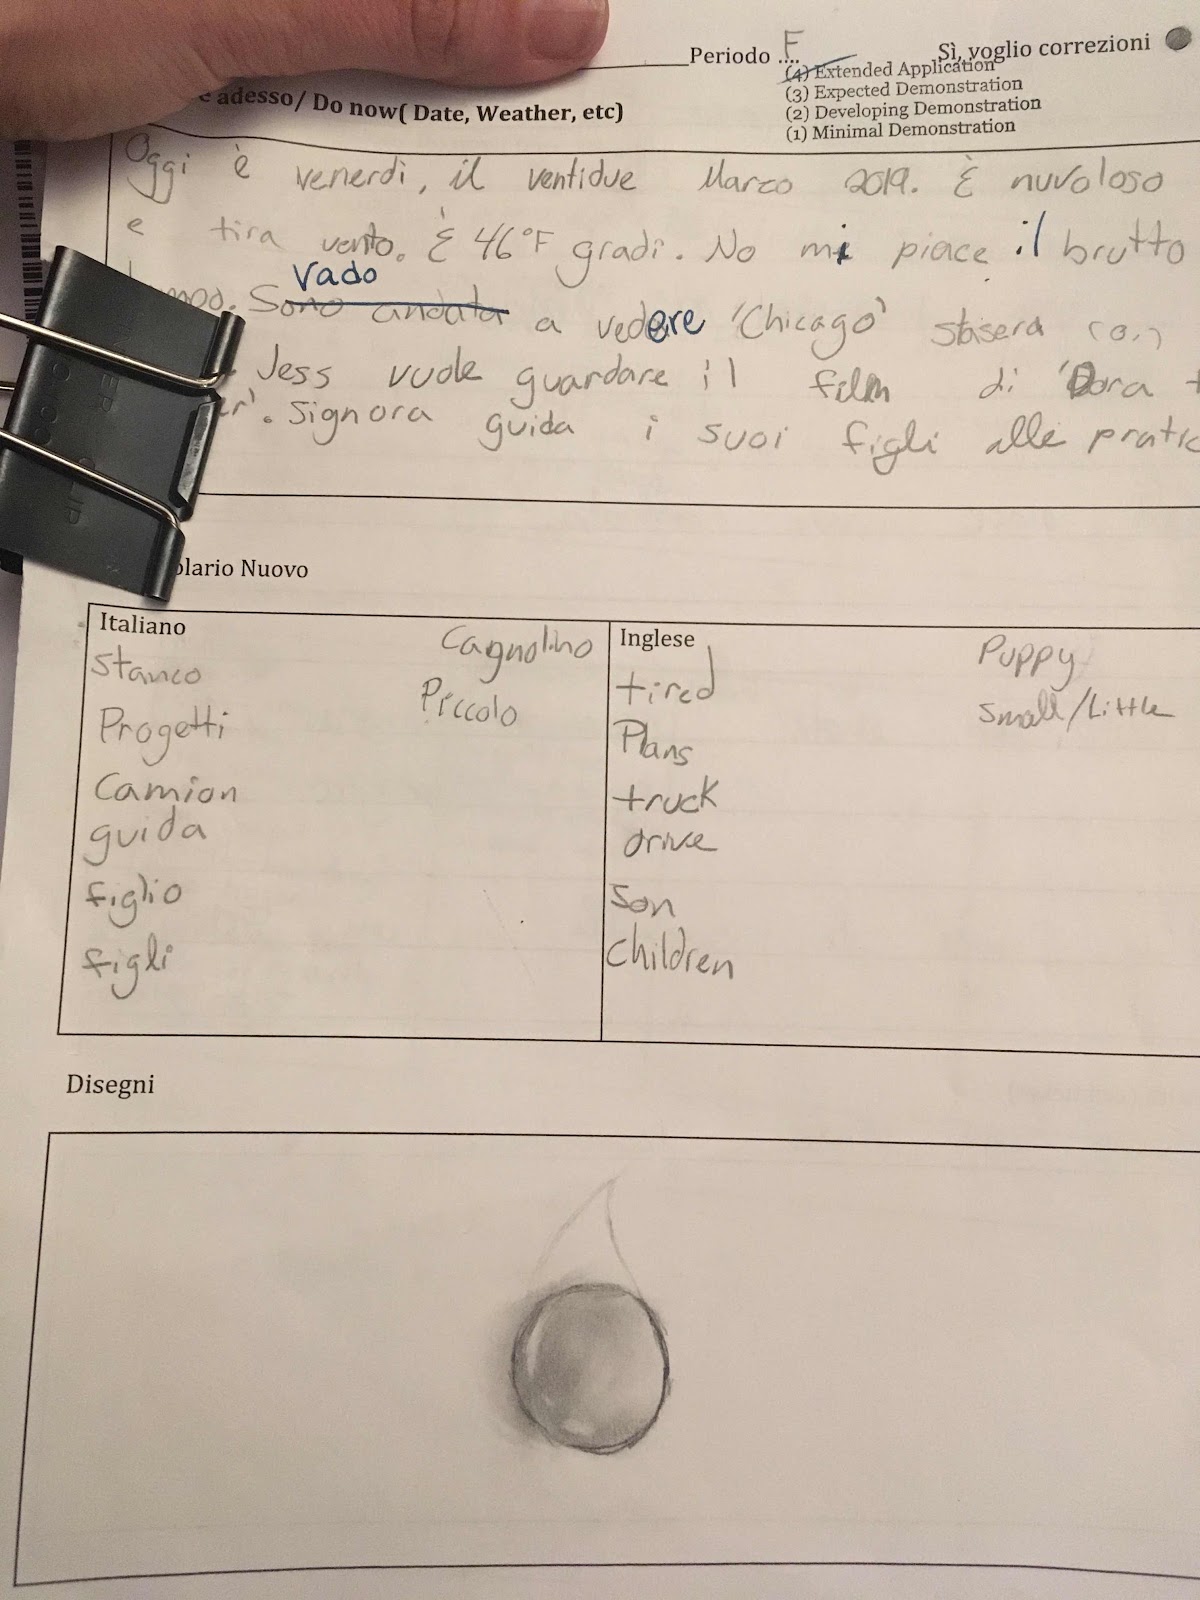 Periodo .... F Sì, voglio correzioni
(4) Extended Application
(3) Expected Demonstration
(2) Developing Demonstration
(1) Minimal Demonstration
e adesso/ Do now( Date, Weather, etc)
Oggi è venerdì, il ventidue Marzo 2019. È nuvoloso
e tira vento. È 46°F gradi. No mi piace il brutto
Vado
Sono andata a vedere 'Chicago' stasera con
Jess vuole guardare il film di 'Dora
Signora guida i suoi figli alle pratic
olario Nuovo
Italiano Inglese
Cagnolino Puppy
Stanco tired
Piccolo Small/Little
Progetti Plans
Camion truck
guida drive
figlio Son
figli Children
Disegni